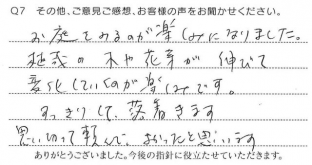 Q7 その他、ご意見ご感想、お客様の声をお聞かせください。
お庭をみるのが楽しみになりました。
植栽の木や花芽が伸びて
変化していくのが楽しみです。
すっきりして、落着きます
思い切って頼んで、よかったと思います
ありがとうございました。今後の指針に役立たせていただきます。